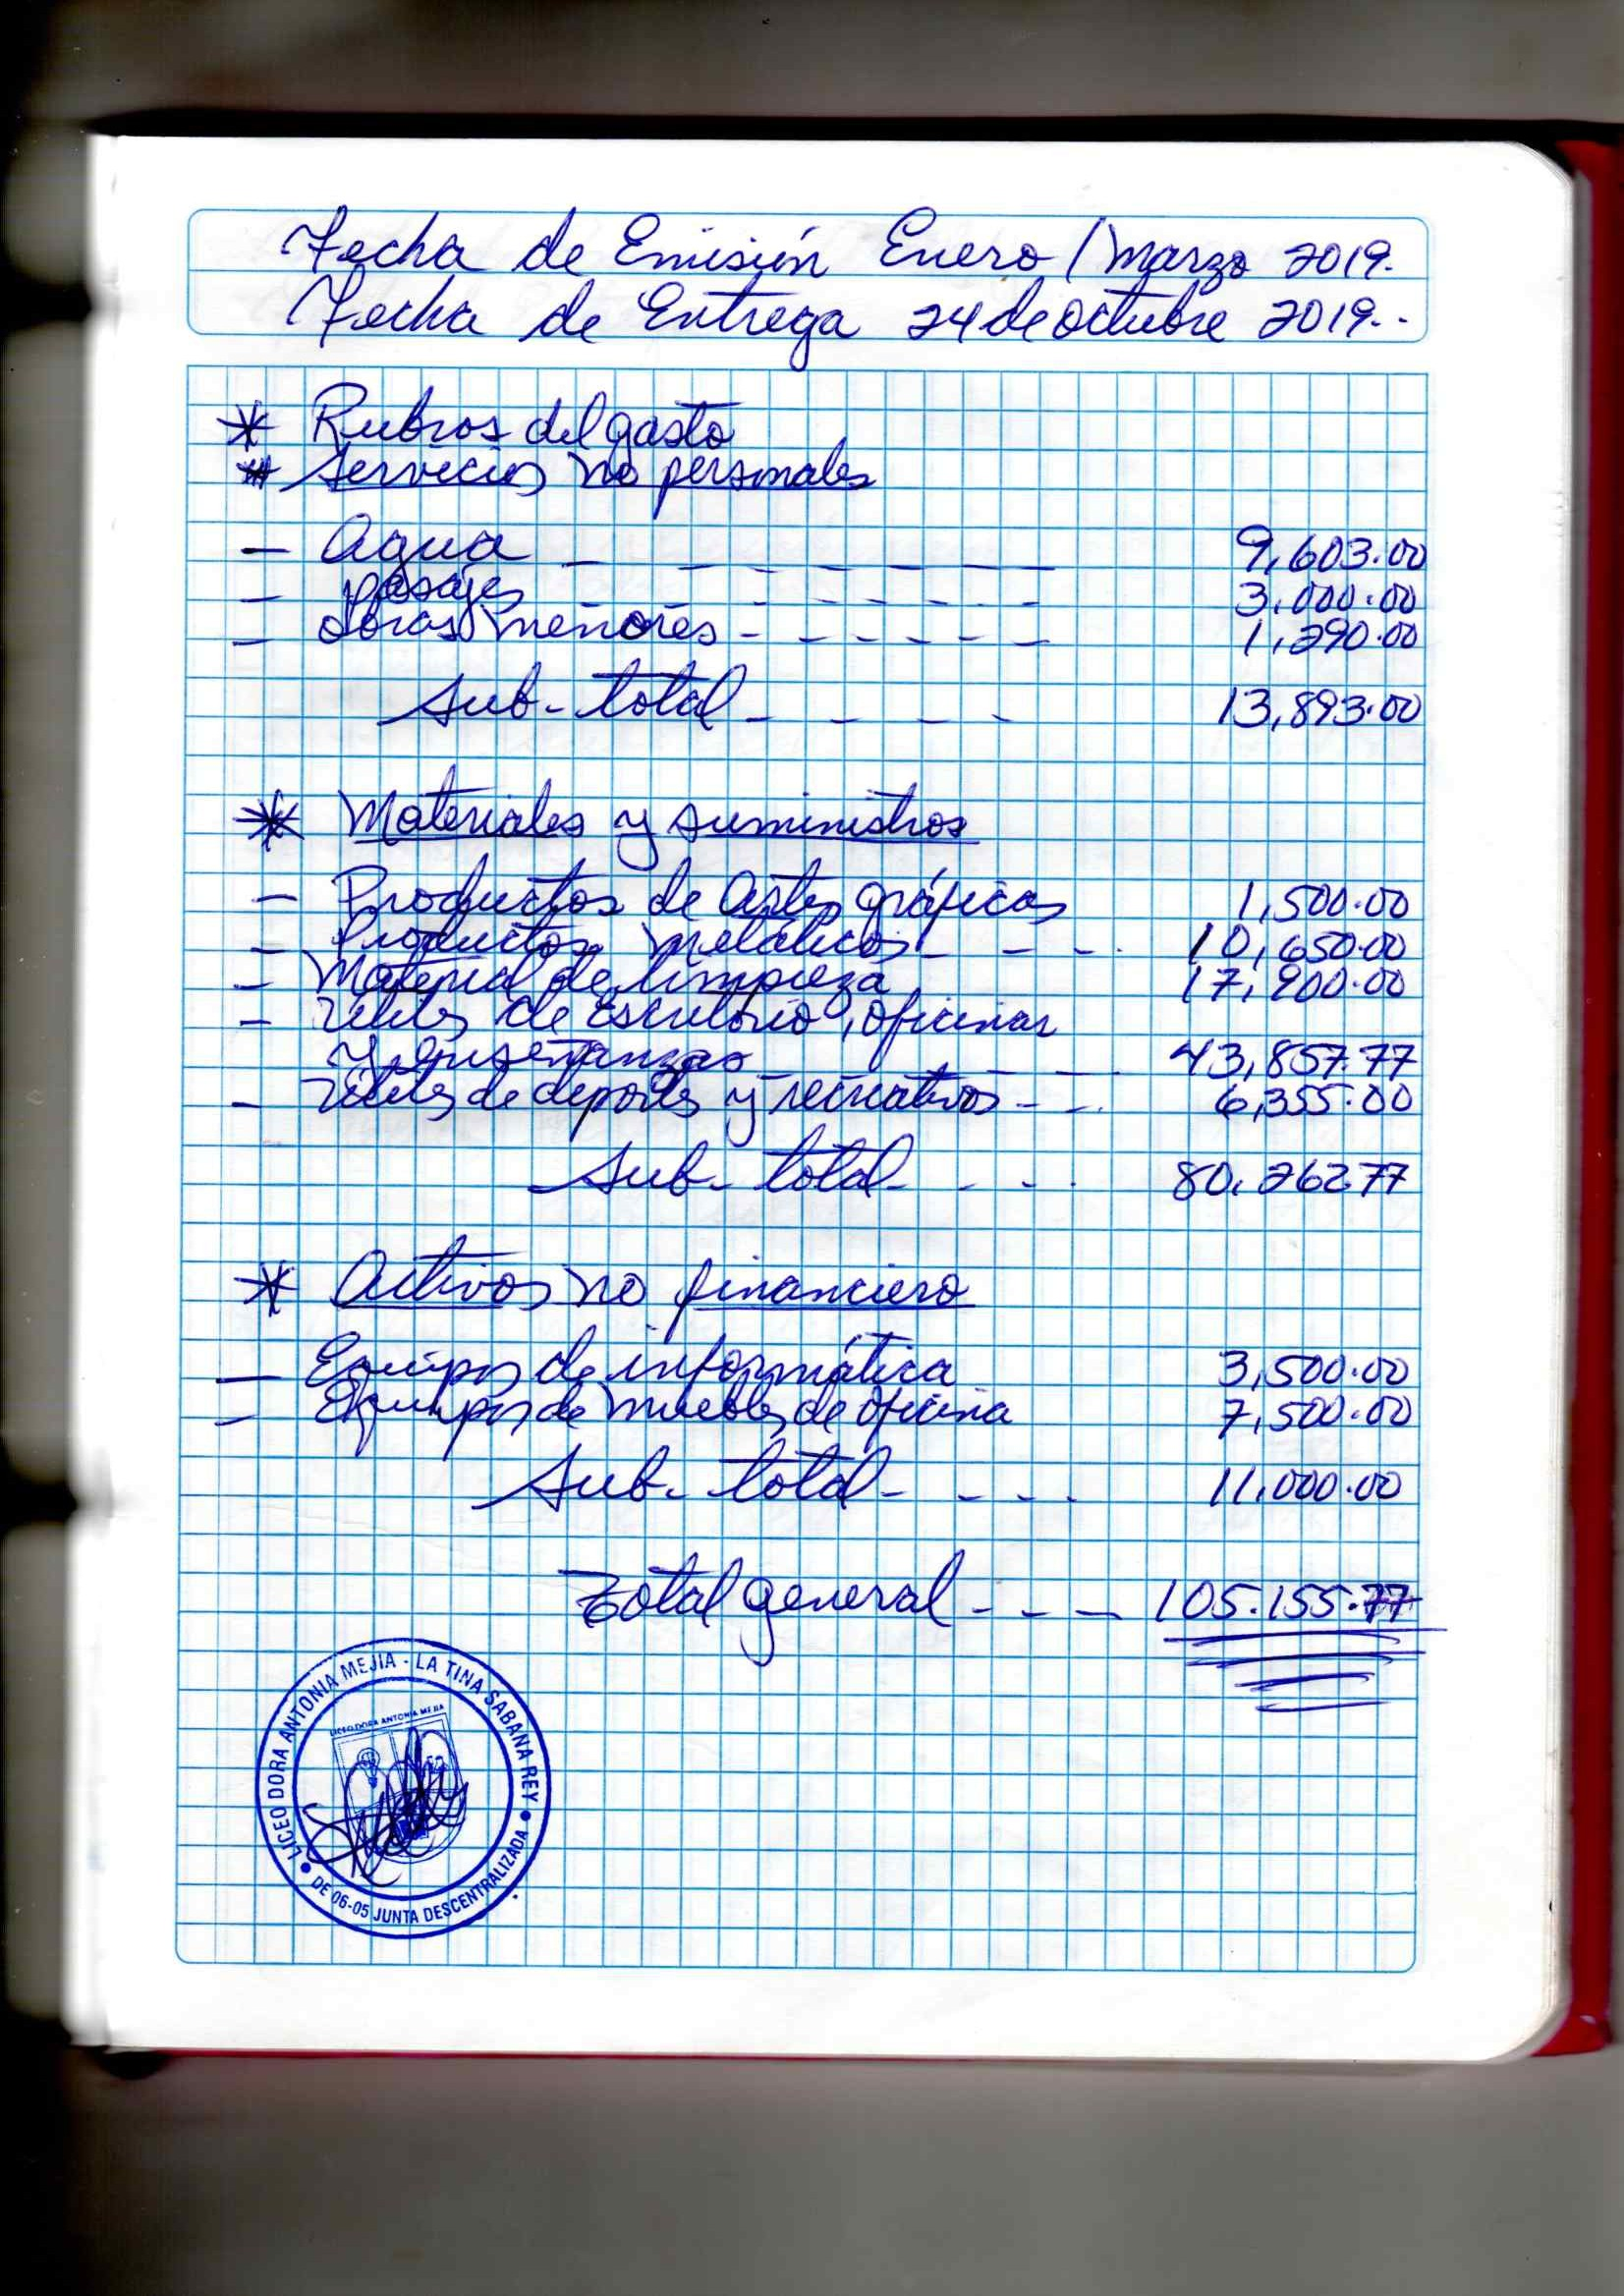 Fecha de Emisión Enero / Marzo 2019.
Fecha de Entrega 24 de octubre 2019..
* Rubros del gasto
* Servicios no personales
- Agua _ _ _ _ _ _ _ 9,603.00
- Pasajes - - - - - - 3,000.00
- Obras menores - - - - - - 1,290.00
Sub-total - - - - 13,893.00
* Materiales y suministros
- Productos de Artes gráficas 1,500.00
- Productos metálicos - - -. 10,650.00
- Material de limpieza 17,900.00
- Utiles de Escritorio, oficinas
y enseñanzas - - 43,857.77
- Utiles de deportes y recreativos - -. 6,355.00
Sub-total - - -. 80,262.77
* Activos no financiero
- Equipos de informática 3,500.00
- Equipos de muebles de oficina 7,500.00
Sub-total - - - . 11,000.00
Total general - - - 105.155.77
LICEO DORA ANTONIA MEJIA - LA TINA SABANA REY
LICEO DORA ANTONIA MEJIA
DE 06-05 JUNTA DESCENTRALIZADA